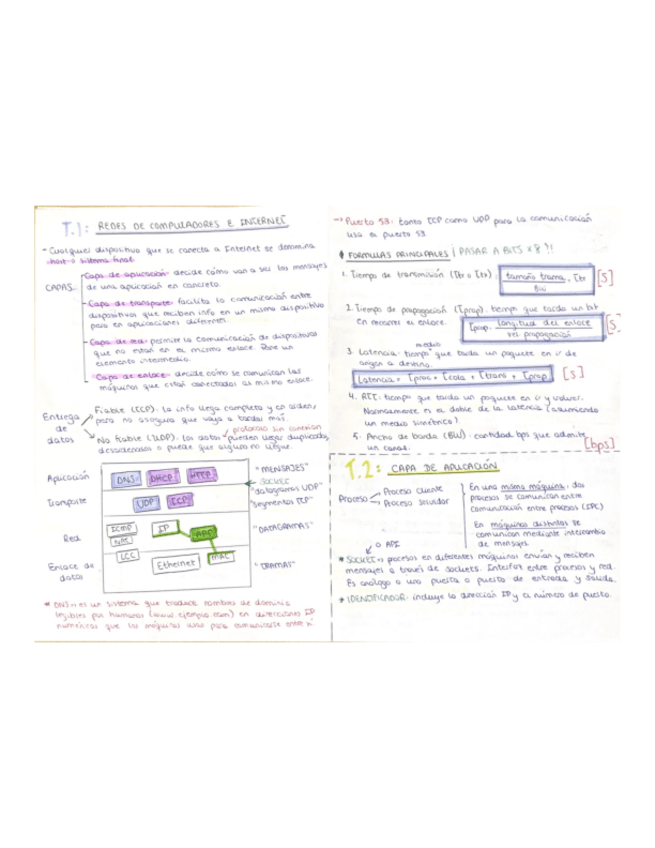 T.1: REDES DE COMPUTADORES E INTERNET
- Cualquier dispositivo que se conecta a Internet se denomina
host → sistema final.
CAPAS
- Capa de aplicación: decide cómo van a ser los mensajes
de una aplicación en concreto.
- Capa de transporte: facilita la comunicación entre
dispositivos que reciben info en un mismo dispositivo
pero en aplicaciones diferentes.
- Capa de red: permite la comunicación de dispositivos
que no están en el mismo enlace. Pone un
elemento intermedio.
- Capa de enlace: decide cómo se comunican las
máquinas que están conectadas al mismo enlace.
Entrega de datos
Fiable (TCP): la info llega completa y en orden,
pero no asegura que vaya a tardar más.
protocolo sin conexión
No fiable (UDP): los datos pueden llegar duplicados,
desordenados o puede que alguno no llegue.
Aplicación DNS DHCP HTTP "MENSAJES"
← SOCKET
Transporte UDP TCP "datagramas UDP"
"segmentos TCP"
Red ICMP IP ARP "DATAGRAMAS"
Enlace de datos LLC Ethernet MAC "TRAMAS"
* DNS → es un sistema que traduce nombres de dominio
legibles por humanos (www.ejemplo.com) en direcciones IP
numéricas que las máquinas usan para comunicarse entre sí.
→ Puerto 53: tanto TCP como UDP para la comunicación
usa el puerto 53.
FORMULAS PRINCIPALES | PASAR A BITS x8 !!
1. Tiempo de transmisión (Ttr o Ttx): tamaño trama / BW = Ttr [s]
2. Tiempo de propagación (Tprop): tiempo que tarda un bit
en recorrer el enlace. Tprop = longitud del enlace / vel propagación [s]
medio
3. Latencia: tiempo que tarda un paquete en ir de
origen a destino.
Latencia = Tproc + Tcola + Ttrans + Tprop [s]
4. RTT: tiempo que tarda un paquete en ir y volver.
Normalmente es el doble de la latencia (asumiendo
un medio simétrico).
5. Ancho de banda (BW): cantidad bps que admite
un canal. [bps]
T.2: CAPA DE APLICACIÓN
Proceso
→ Proceso cliente
→ Proceso servidor
En una misma máquina, dos
procesos se comunican entre
comunicación entre procesos (IPC)
En máquinas distintas se
comunican mediante intercambio
de mensajes.
o API
* SOCKET: procesos en diferentes máquinas envían y reciben
mensajes a través de sockets. Interfaz entre procesos y red.
Es análogo a una puerta o puesto de entrada y salida.
* IDENTIFICADOR: incluye la dirección IP y el número de puesto.